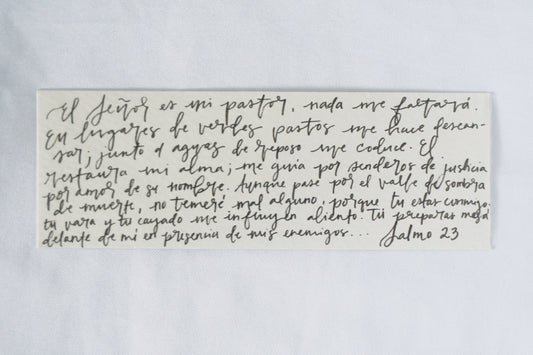 El Señor es mi pastor, nada me faltará.
En lugares de verdes pastos me hace descan-
sar; junto a aguas de reposo me coduce. El
restaura mi alma; me guía por senderos de justicia
por amor de su nombre. Aunque pase por el valle de sombra
de muerte, no temeré mal alguno, porque tu estas conmigo.
tu vara y tu cayado me infunyen aliento. Tú preparas mesa
delante de mí en presencia de mis enemigos... Salmo 23